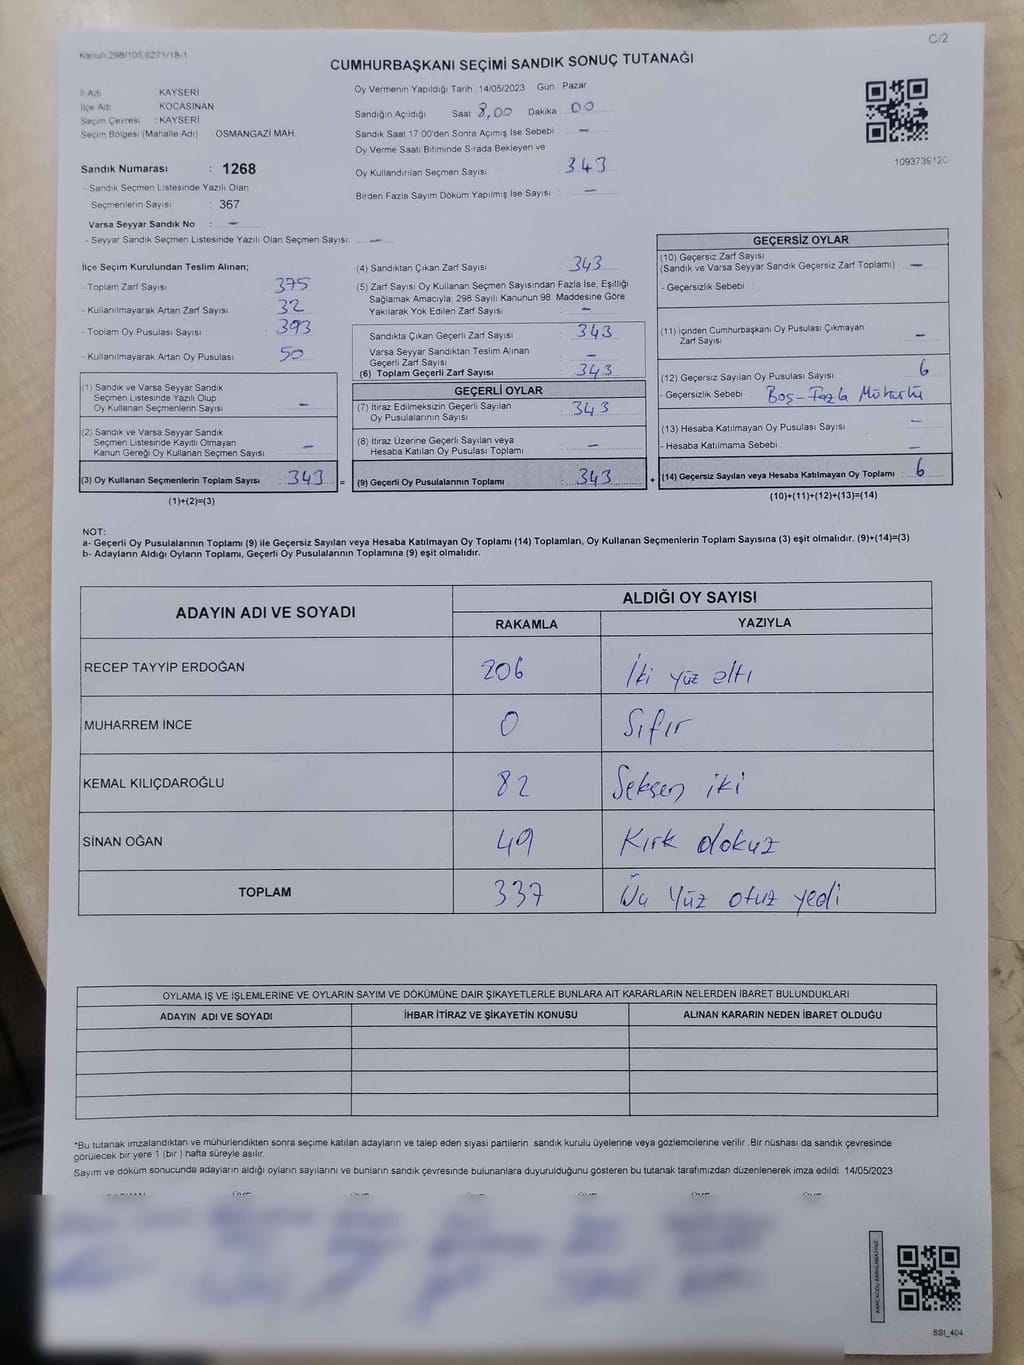 Kanun.298/105,6271/18-1
C/2
CUMHURBAŞKANI SEÇİMİ SANDIK SONUÇ TUTANAĞI
İl Adı KAYSERİ
İlçe Adı KOCASİNAN
Seçim Çevresi : KAYSERİ
Seçim Bölgesi (Mahalle Adı) OSMANGAZİ MAH.
Sandık Numarası : 1268
- Sandık Seçmen Listesinde Yazılı Olan
Seçmenlerin Sayısı : 367
Varsa Seyyar Sandık No : —
- Seyyar Sandık Seçmen Listesinde Yazılı Olan Seçmen Sayısı: —
Oy Vermenin Yapıldığı Tarih : 14/05/2023 Gün : Pazar
Sandığın Açıldığı Saat 8,00 Dakika 00
Sandık Saat 17:00'den Sonra Açımış İse Sebebi : —
Oy Verme Saati Bitiminde Sırada Bekleyen ve
Oy Kullandırılan Seçmen Sayısı : 343
Birden Fazla Sayım Döküm Yapılmış İse Sayısı : —
1093739120
İlçe Seçim Kurulundan Teslim Alınan;
- Toplam Zarf Sayısı : 375
- Kullanılmayarak Artan Zarf Sayısı : 32
- Toplam Oy Pusulası Sayısı : 393
- Kullanılmayarak Artan Oy Pusulası : 50
(1) Sandık ve Varsa Seyyar Sandık
Seçmen Listesinde Yazılı Olup
Oy Kullanan Seçmenlerin Sayısı : —
(2) Sandık ve Varsa Seyyar Sandık
Seçmen Listesinde Kayıtlı Olmayan
Kanun Gereği Oy Kullanan Seçmen Sayısı : —
(3) Oy Kullanan Seçmenlerin Toplam Sayısı : 343 =
(1)+(2)=(3)
(4) Sandıktan Çıkan Zarf Sayısı : 343
(5) Zarf Sayısı Oy Kullanan Seçmen Sayısından Fazla İse, Eşitliği
Sağlamak Amacıyla, 298 Sayılı Kanunun 98. Maddesine Göre
Yakılarak Yok Edilen Zarf Sayısı : —
Sandıkta Çıkan Geçerli Zarf Sayısı : 343
Varsa Seyyar Sandıktan Teslim Alınan
Geçerli Zarf Sayısı : —
(6) Toplam Geçerli Zarf Sayısı : 343
GEÇERLİ OYLAR
(7) İtiraz Edilmeksizin Geçerli Sayılan
Oy Pusulalarının Sayısı : 343
(8) İtiraz Üzerine Geçerli Sayılan veya
Hesaba Katılan Oy Pusulası Toplamı : —
(9) Geçerli Oy Pusulalarının Toplamı : 343 +
GEÇERSİZ OYLAR
(10) Geçersiz Zarf Sayısı
(Sandık ve Varsa Seyyar Sandık Geçersiz Zarf Toplamı) : —
- Geçersizlik Sebebi :
(11) İçinden Cumhurbaşkanı Oy Pusulası Çıkmayan
Zarf Sayısı : —
(12) Geçersiz Sayılan Oy Pusulası Sayısı : 6
- Geçersizlik Sebebi : Boş - Fazla Mühürlü
(13) Hesaba Katılmayan Oy Pusulası Sayısı : —
- Hesaba Katılmama Sebebi : —
(14) Geçersiz Sayılan veya Hesaba Katılmayan Oy Toplamı : 6
(10)+(11)+(12)+(13)=(14)
NOT:
a- Geçerli Oy Pusulalarının Toplamı (9) ile Geçersiz Sayılan veya Hesaba Katılmayan Oy Toplamı (14) Toplamları, Oy Kullanan Seçmenlerin Toplam Sayısına (3) eşit olmalıdır. (9)+(14)=(3)
b- Adayların Aldığı Oyların Toplamı, Geçerli Oy Pusulalarının Toplamına (9) eşit olmalıdır.
ADAYIN ADI VE SOYADI ALDIĞI OY SAYISI
RAKAMLA YAZIYLA
RECEP TAYYİP ERDOĞAN 206 İki yüz altı
MUHARREM İNCE 0 Sıfır
KEMAL KILIÇDAROĞLU 82 Seksen iki
SİNAN OĞAN 49 Kırk dokuz
TOPLAM 337 Üç Yüz otuz yedi
OYLAMA İŞ VE İŞLEMLERİNE VE OYLARIN SAYIM VE DÖKÜMÜNE DAİR ŞİKAYETLERLE BUNLARA AİT KARARLARIN NELERDEN İBARET BULUNDUKLARI
ADAYIN ADI VE SOYADI İHBAR İTİRAZ VE ŞİKAYETİN KONUSU ALINAN KARARIN NEDEN İBARET OLDUĞU
*Bu tutanak imzalandıktan ve mühürlendikten sonra seçime katılan adayların ve talep eden siyasi partilerin sandık kurulu üyelerine veya gözlemcilerine verilir .Bir nüshası da sandık çevresinde
görülecek bir yere 1 (bir ) hafta süreyle asılır.
Sayım ve döküm sonucunda adayların aldığı oyların sayılarını ve bunların sandık çevresinde bulunanlara duyurulduğunu gösteren bu tutanak tarafımızdan düzenlenerek imza edildi 14/05/2023
SSI_404